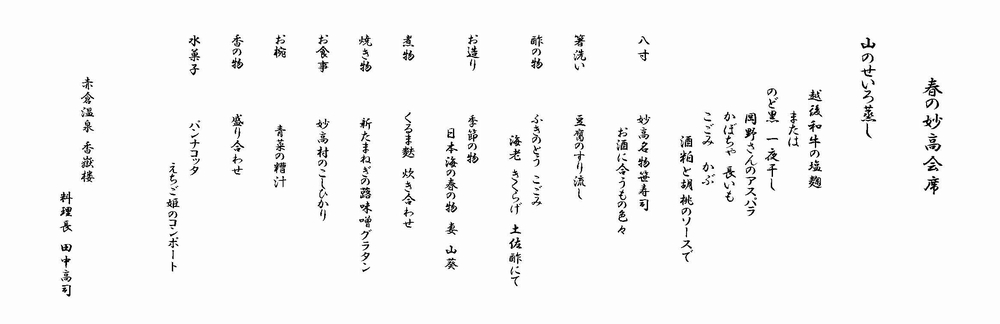 春の妙高会席
山のせいろ蒸し
越後和牛の塩麹
または
のど黒 一夜干し
岡野さんのアスパラ
かぼちゃ 長いも
こごみ かぶ
酒粕と胡桃のソースで
八寸 妙高名物笹寿司
お酒に合うもの色々
箸洗い 豆腐のすり流し
酢の物 ふきのとう こごみ
海老 きくらげ 土佐酢にて
お造り 季節の物
日本海の春の物 妻 山葵
煮物 くるま麩 炊き合わせ
焼き物 新たまねぎの蕗味噌グラタン
お食事 妙高村のこしひかり
お椀 青菜の糟汁
香の物 盛り合わせ
水菓子 パンナコッタ
えちご姫のコンポート
赤倉温泉 香嶽楼
料理長 田中高司